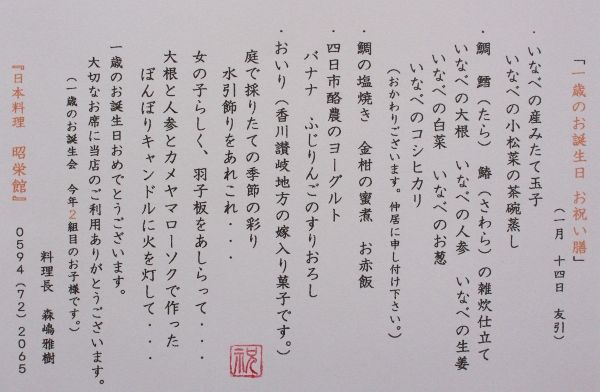 「一歳のお誕生日 お祝い膳」
（一月 十四日 友引）
・いなべの産みたて玉子
いなべの小松菜の茶碗蒸し
・鯛 鱈（たら） 鰆（さわら）の雑炊仕立て
いなべの大根 いなべの人参 いなべの生姜
いなべの白菜 いなべのお葱
いなべのコシヒカリ
（おかわりございます。仲居に申し付け下さい。）
・鯛の塩焼き 金柑の蜜煮 お赤飯
・四日市酪農のヨーグルト
バナナ ふじりんごのすりおろし
・おいり（香川讃岐地方の嫁入り菓子です。）
庭で採りたての季節の彩り
水引飾りをあれこれ・・・
女の子らしく、羽子板をあしらって・・・
大根と人参とカメヤマローソクで作った
ぼんぼりキャンドルに火を灯して・・・
一歳のお誕生日おめでとうございます。
大切なお席に当店のご利用ありがとうございます。
（一歳のお誕生会 今年2組目のお子様です。）
料理長 森嶋雅樹
『日本料理 昭栄館』 0594（72）2065
祝